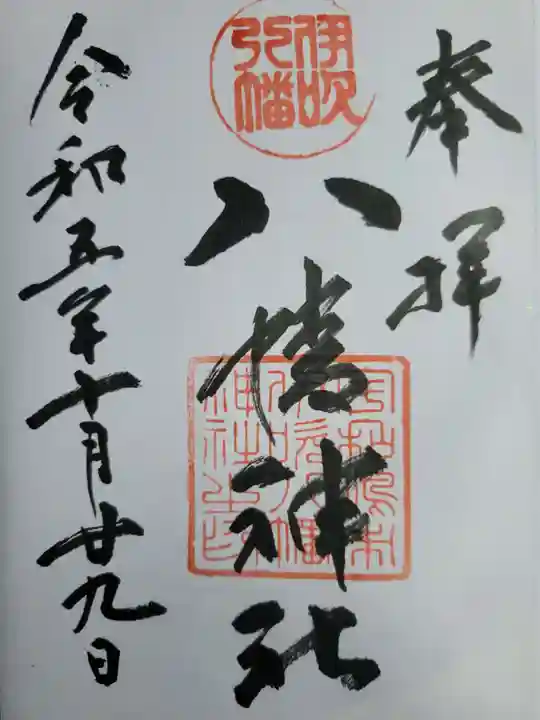 奉拝
伊吹
八幡
八幡神社
令和五年十月廿九日